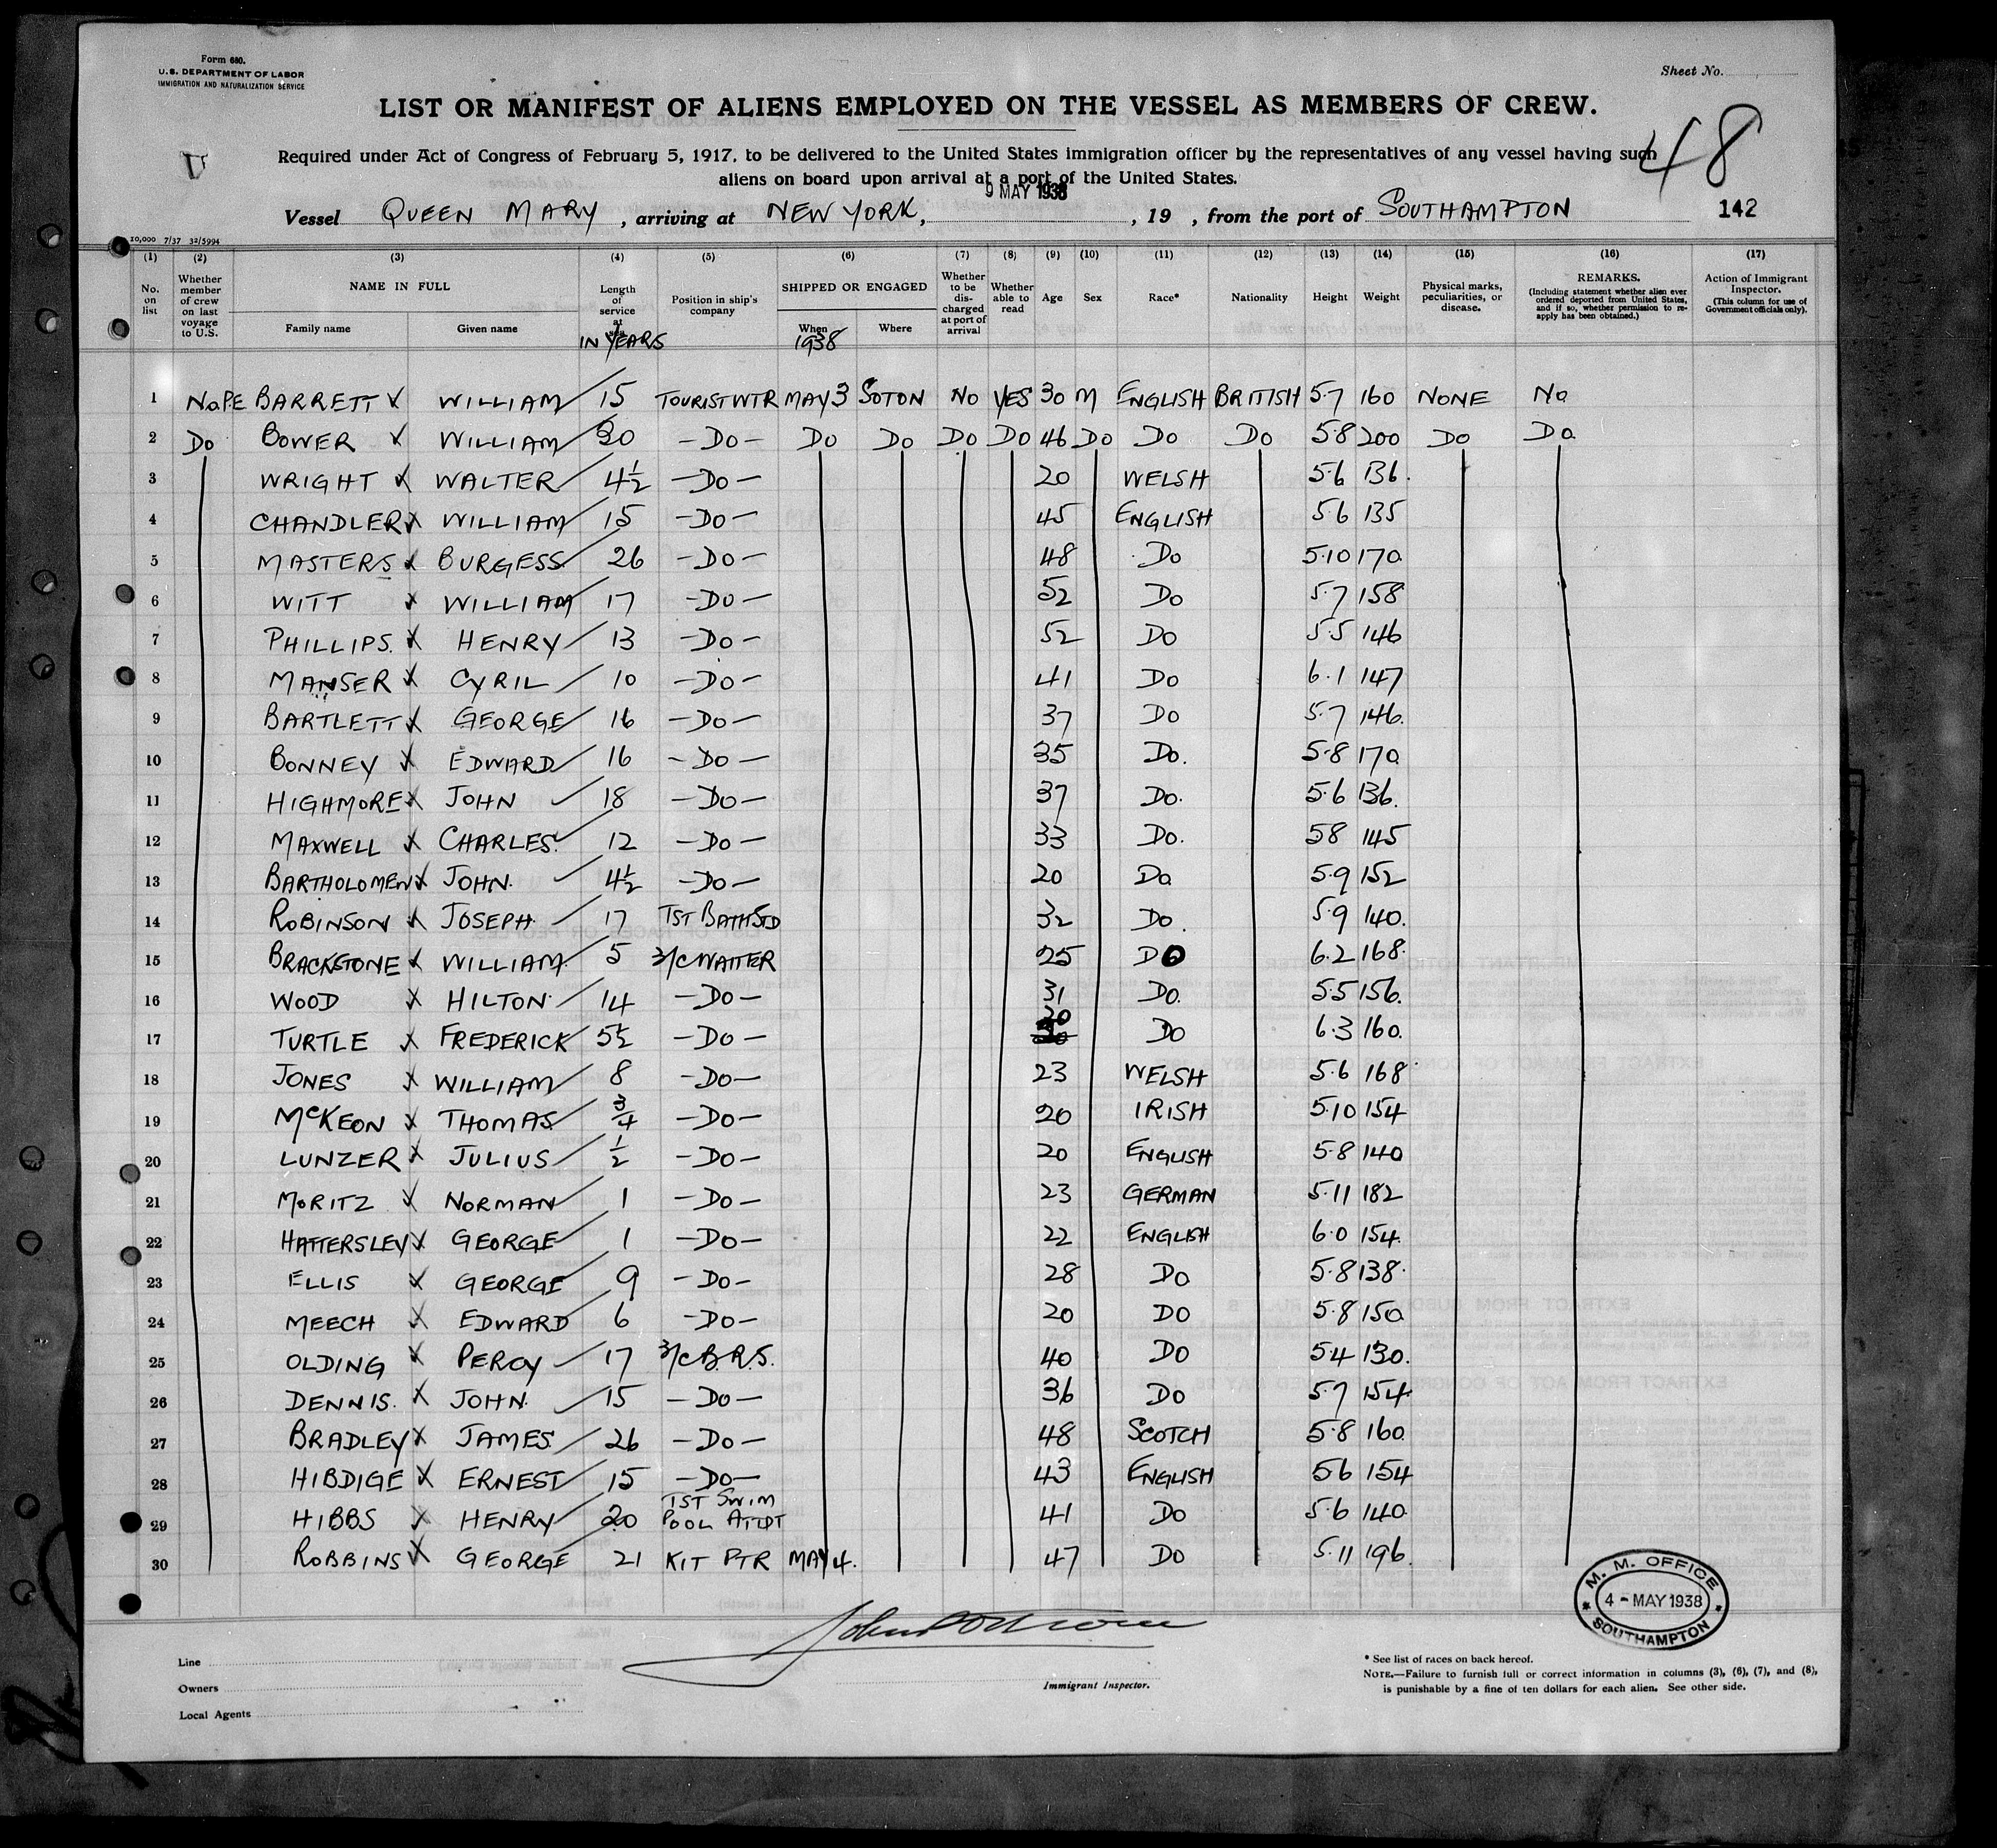 Form 680.
U.S. DEPARTMENT OF LABOR
IMMIGRATION AND NATURALIZATION SERVICE
Sheet No.
LIST OR MANIFEST OF ALIENS EMPLOYED ON THE VESSEL AS MEMBERS OF CREW.
48
Required under Act of Congress of February 5, 1917, to be delivered to the United States immigration officer by the representatives of any vessel having such
aliens on board upon arrival at a port of the United States.
9 MAY 1938
Vessel QUEEN MARY, arriving at NEW YORK, , 19 , from the port of SOUTHAMPTON 142
10,000 7/37 32/5994
(1) (2) (3) (4) (5) (6) (7) (8) (9) (10) (11) (12) (13) (14) (15) (16) (17)
No. on list Whether member of crew on last voyage to U.S. NAME IN FULL Family name Given name Length of service at sea IN YEARS Position in ship's company SHIPPED OR ENGAGED When 1938 Where Whether to be discharged at port of arrival Whether able to read Age Sex Race* Nationality Height Weight Physical marks, peculiarities, or disease. REMARKS. (Including statement whether alien ever ordered deported from United States, and if so, whether permission to re-apply has been obtained.) Action of Immigrant Inspector. (This column for use of Government officials only).
1 BARRETT WILLIAM 15 TOURIST WTR MAY 3 SOTON NO YES 30 M ENGLISH BRITISH 5.7 160 NONE NO
2 DO BOWER WILLIAM 30 -DO- DO DO DO DO 46 DO DO DO 5.8 200 DO DO
3 WRIGHT WALTER 4½ -DO- 20 WELSH 5.6 136.
4 CHANDLER WILLIAM 15 -DO- 45 ENGLISH 5.6 135
5 MASTERS BURGESS 26 -DO- 48 DO 5.10 170
6 WITT WILLIAM 17 -DO- 52 DO 5.7 158
7 PHILLIPS. HENRY 13 -DO- 52 DO 5.5 146
8 MANSER CYRIL 10 -DO- 41 DO 6.1 147
9 BARTLETT GEORGE 16 -DO- 37 DO 5.7 146.
10 BONNEY EDWARD 16 -DO- 35 DO. 5.8 170
11 HIGHMORE JOHN 18 -DO- 37 DO. 5.6 136.
12 MAXWELL CHARLES. 12 -DO- 33 DO. 5.8 145
13 BARTHOLOMEW JOHN. 4½ -DO- 20 DO 5.9 152
14 ROBINSON JOSEPH 17 TST BATH STD 32 DO. 5.9 140.
15 BRACKSTONE WILLIAM. 5 3/C WAITER 25 DO 6.2 168.
16 WOOD HILTON. 14 -DO- 31 DO. 5.5 156.
17 TURTLE FREDERICK 5½ -DO- 30 DO 6.3 160.
18 JONES WILLIAM 8 -DO- 23 WELSH 5.6 168
19 McKEON THOMAS ¾ -DO- 20 IRISH 5.10 154
20 LUNZER JULIUS ½ -DO- 20 ENGLISH 5.8 140
21 MORITZ NORMAN 1 -DO- 23 GERMAN 5.11 182
22 HATTERSLEY GEORGE 1 -DO- 22 ENGLISH 6.0 154.
23 ELLIS GEORGE 9 -DO- 28 DO 5.8 138.
24 MEECH EDWARD 6 -DO- 20 DO 5.8 150
25 OLDING PERCY 17 3/C B.R.S. 40 DO 5.4 130.
26 DENNIS. JOHN. 15 -DO- 36 DO 5.7 154
27 BRADLEY JAMES 26 -DO- 48 SCOTCH 5.8 160
28 HIBDIGE ERNEST 15 -DO- 43 ENGLISH 5.6 154
29 HIBBS HENRY 20 TST SWIM POOL ATTDT 41 DO 5.6 140
30 ROBBINS GEORGE 21 KIT PTR MAY 4. 47 DO 5.11 196.
M. M. OFFICE
4 - MAY 1938
SOUTHAMPTON
Line
Owners
Local Agents
Immigrant Inspector.
* See list of races on back hereof.
NOTE.—Failure to furnish full or correct information in columns (3), (6), (7), and (8),
is punishable by a fine of ten dollars for each alien. See other side.